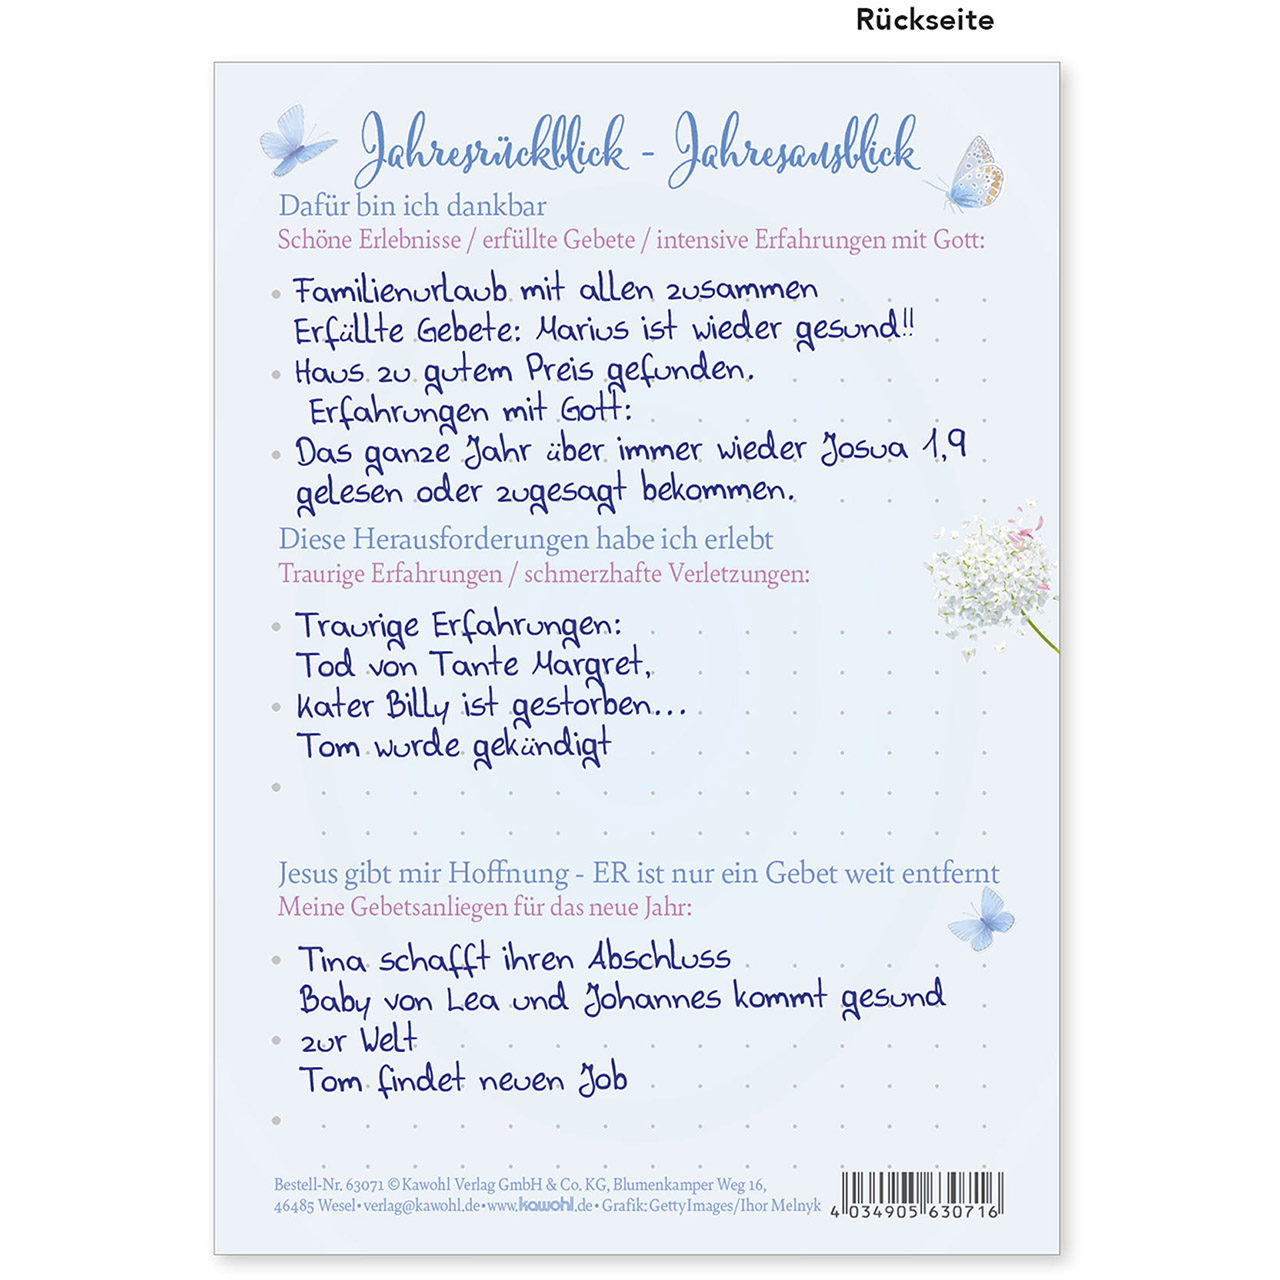 Rückseite
Jahresrückblick - Jahresausblick
Dafür bin ich dankbar
Schöne Erlebnisse / erfüllte Gebete / intensive Erfahrungen mit Gott:
Familienurlaub mit allen zusammen
Erfüllte Gebete: Marius ist wieder gesund!!
Haus zu gutem Preis gefunden.
Erfahrungen mit Gott:
Das ganze Jahr über immer wieder Josua 1,9
gelesen oder zugesagt bekommen.
Diese Herausforderungen habe ich erlebt
Traurige Erfahrungen / schmerzhafte Verletzungen:
Traurige Erfahrungen:
Tod von Tante Margret,
Kater Billy ist gestorben...
Tom wurde gekündigt
Jesus gibt mir Hoffnung - ER ist nur ein Gebet weit entfernt
Meine Gebetsanliegen für das neue Jahr:
Tina schafft ihren Abschluss
Baby von Lea und Johannes kommt gesund
zur Welt
Tom findet neuen Job
Bestell-Nr. 63071 © Kawohl Verlag GmbH & Co. KG, Blumenkamper Weg 16,
46485 Wesel • verlag@kawohl.de • www.kawohl.de • Grafik: GettyImages/Ihor Melnyk
4 034905 630716